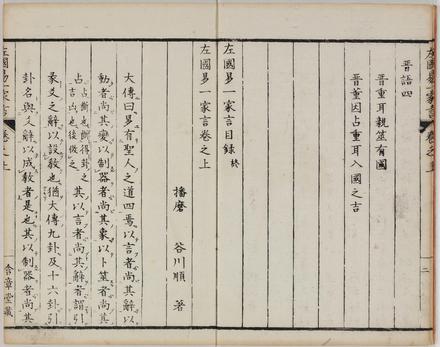 左國易一家言 卷之上 二
晋語四
晋重耳親筮有國
晋董因占重耳入國之吉
左國易一家言目録 終
左國易一家言卷之上
播磨 谷川順 著
大傳曰易有聖人之道四焉以言者尚其辭以
動者尚其變以制器者尚其象以卜筮者尚其
占 占斷也斷得卦之吉凶也後倣之 其以言者尚其辭者謂引
彖爻之辭以設教也猶大傳九卦及十六卦引
卦名與爻辭以成教者是也其以制器者尚其
左國易一家言 卷之上 含章堂藏